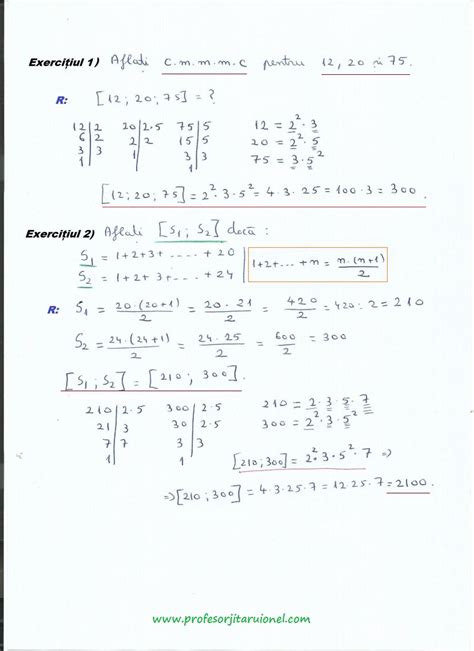 Exercițiul 1) Aflați c.m.m.m.c pentru 12, 20 și 75.
R: [12; 20; 75] = ?
12 | 2 20 | 2·5 75 | 5 12 = 2²·3
6 | 2 2 | 2 15 | 5 20 = 2²·5
3 | 3 1 | 3 | 3 75 = 3·5²
1 | 1 |
[12; 20; 75] = 2²·3·5² = 4·3·25 = 100·3 = 300.
Exercițiul 2) Aflați [S₁; S₂] dacă:
S₁ = 1+2+3+.....+20
S₂ = 1+2+3+.....+24
1+2+...+n = n·(n+1)/2
R: S₁ = 20·(20+1)/2 = 20·21/2 = 420/2 = 420:2 = 210
S₂ = 24·(24+1)/2 = 24·25/2 = 600/2 = 300
[S₁; S₂] = [210; 300].
210 | 2·5 300 | 2·5 210 = 2·3·5·7
21 | 3 30 | 2·5 300 = 2²·3·5²
7 | 7 3 | 3
1 | 1 |
[210; 300] = 2²·3·5²·7 =>
=> [210; 300] = 4·3·25·7 = 12·25·7 = 2100.
www.profesorjitaruionel.com